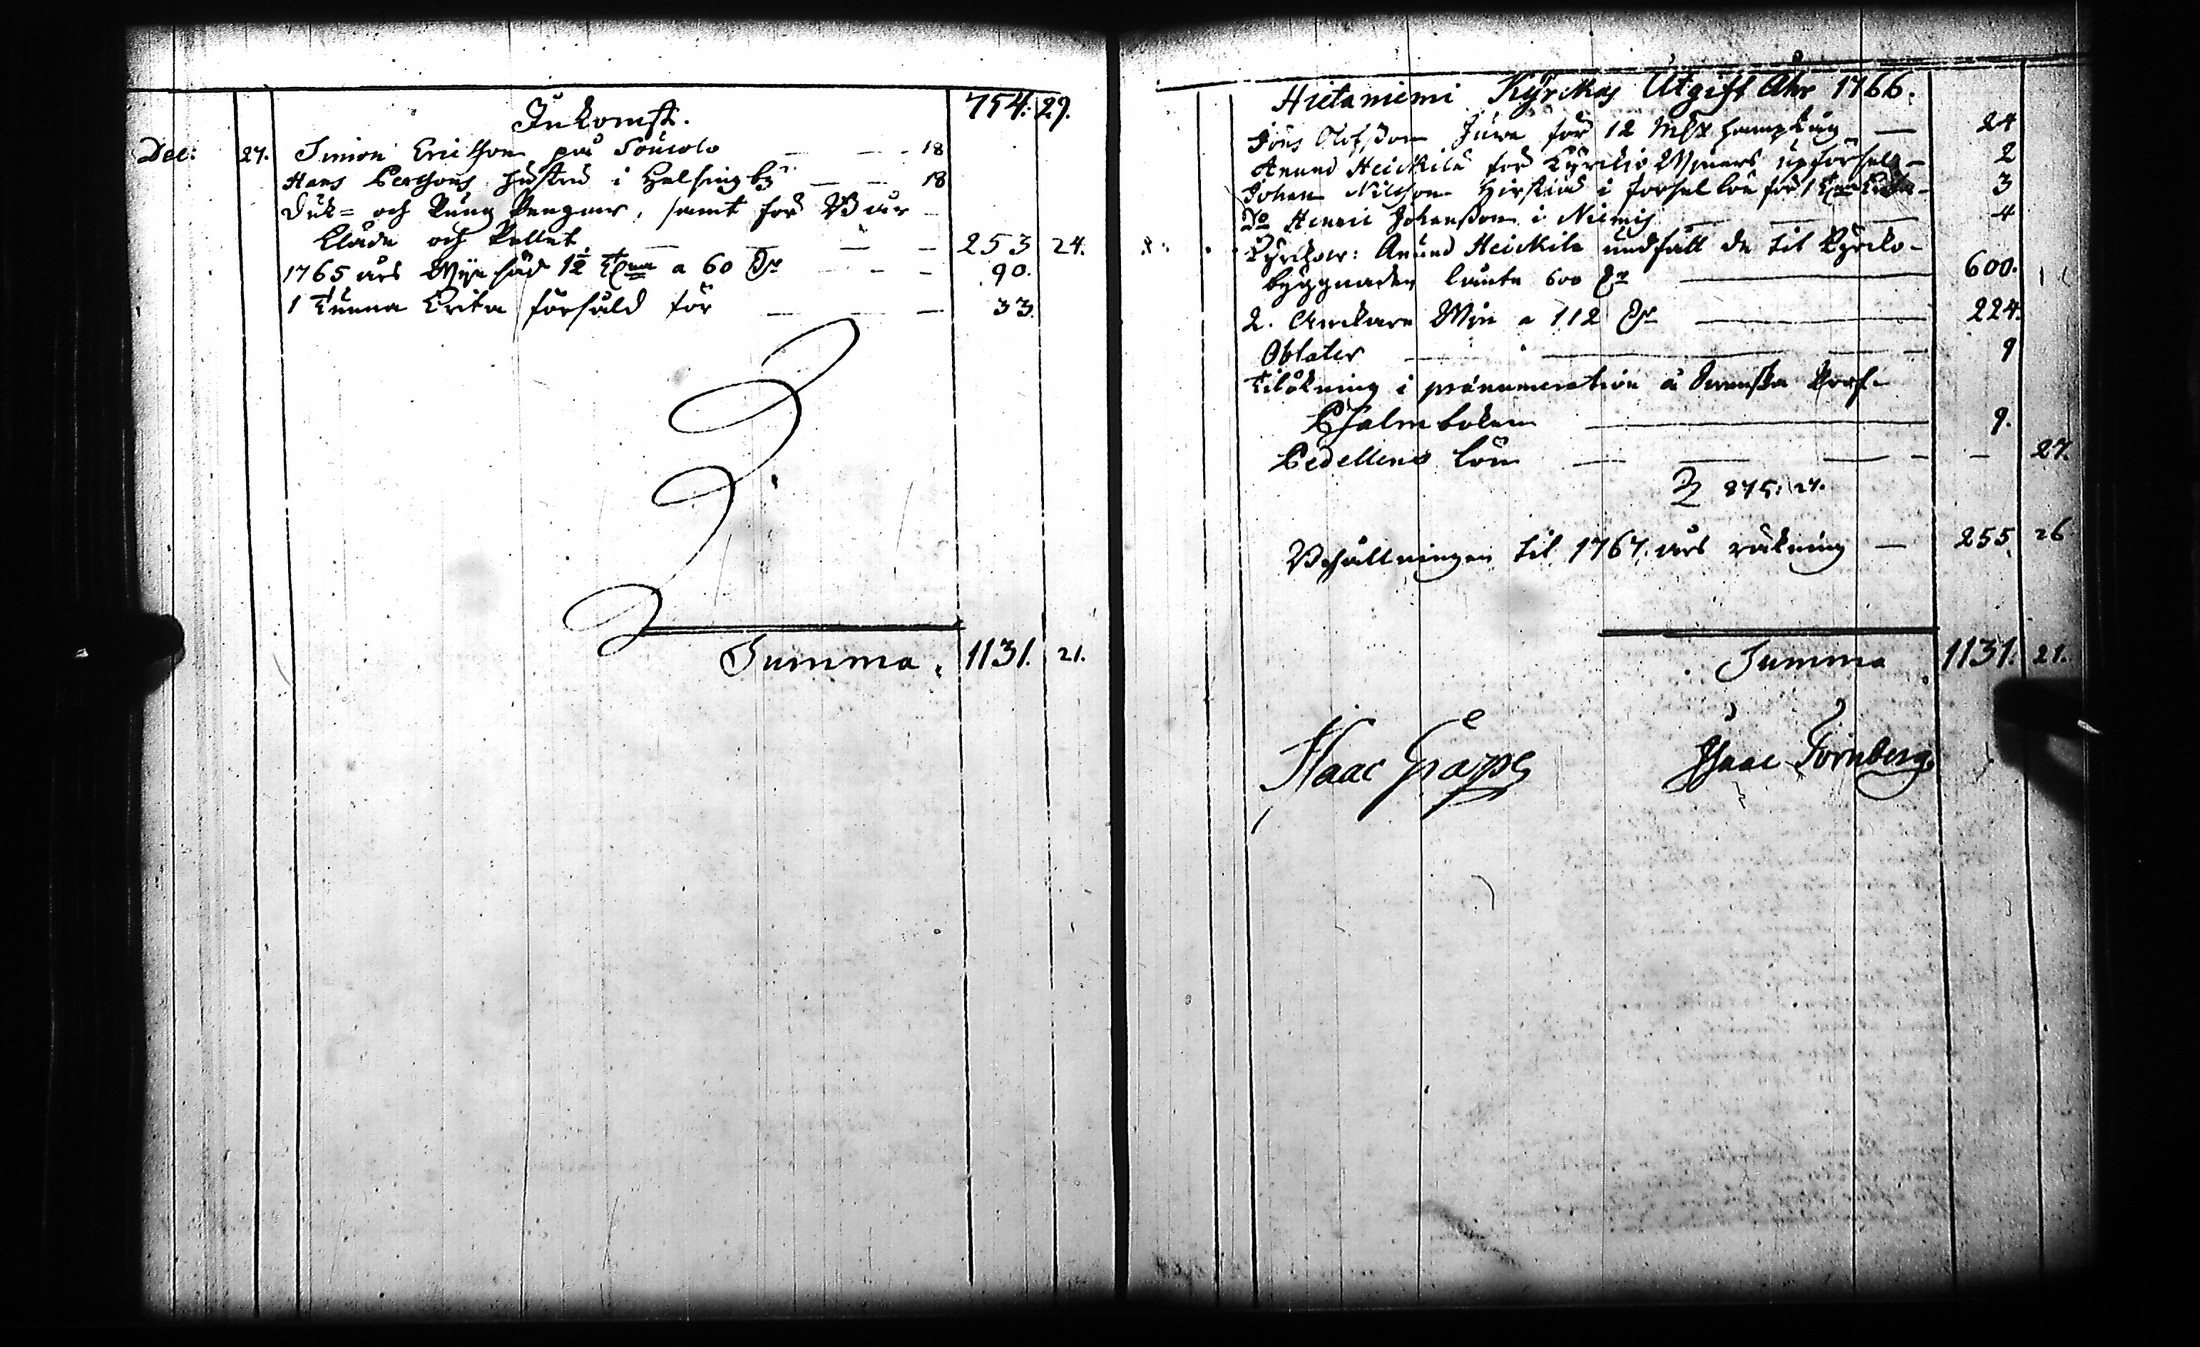 Inkomst. 754. 29.
Dec: 27. Simon Ericsson på Soucolo — — 18
Hans Persons hustru i Helsingby — — 18
Duk- och Pung Pengar, samt för Bår-
kläde och Pellet — — — 253 24.
1765 års Wijn säd 1½ t:na a 60 Dr — — 90.
1 Tunna Krita försåld för — — — 33.
Summa. 1131. 21.
Hietaniemi Kyrckas Utgift Åhr 1766.
Jöns Olofsson Juva för 12 Mkr — 24
Anund Heickilä för Kyrkio Wijnets upförsel — 2
Johan Nilsson i forsel lön för 1 t:na — 3
Do Henric Johansson i Niemis — 4
Kyrckow: Anund Heickilä undfått de til Kyrkio-
byggnaden lånte 600 Dr — 600.
2. Anckare Wijn a 112 Dr — 224.
Oblater — 9
Tilökning i pränumeration å Swenska
Psalmboken — 9.
Pedellens lön — — — 27.
875: 27.
Behållningen til 1767. års räkning — 255. 26
Summa 1131. 21.
Isaac Grape
Isaac Fornberg